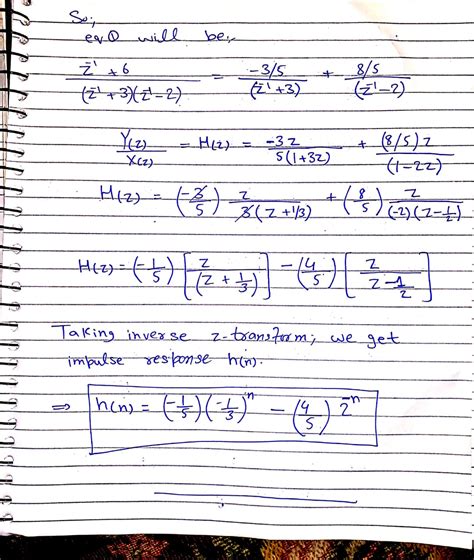 So;
eq① will be;-
z⁻¹ + 6 / (z⁻¹ + 3)(z⁻¹ - 2) = -3/5 / (z⁻¹ + 3) + 8/5 / (z⁻¹ - 2)
Y(z) / X(z) = H(z) = -3z / 5(1+3z) + (8/5) z / (1-2z)
H(z) = (-3/5) z / 3(z + 1/3) + (8/5) z / (-2)(z - 1/2)
H(z) = (-1/5) [z / (z + 1/3)] - (4/5) [z / z - 1/2]
Taking inverse z-transform; we get
impulse response h(n).
⇒ h(n) = (-1/5) (-1/3)ⁿ - (4/5) 2⁻ⁿ